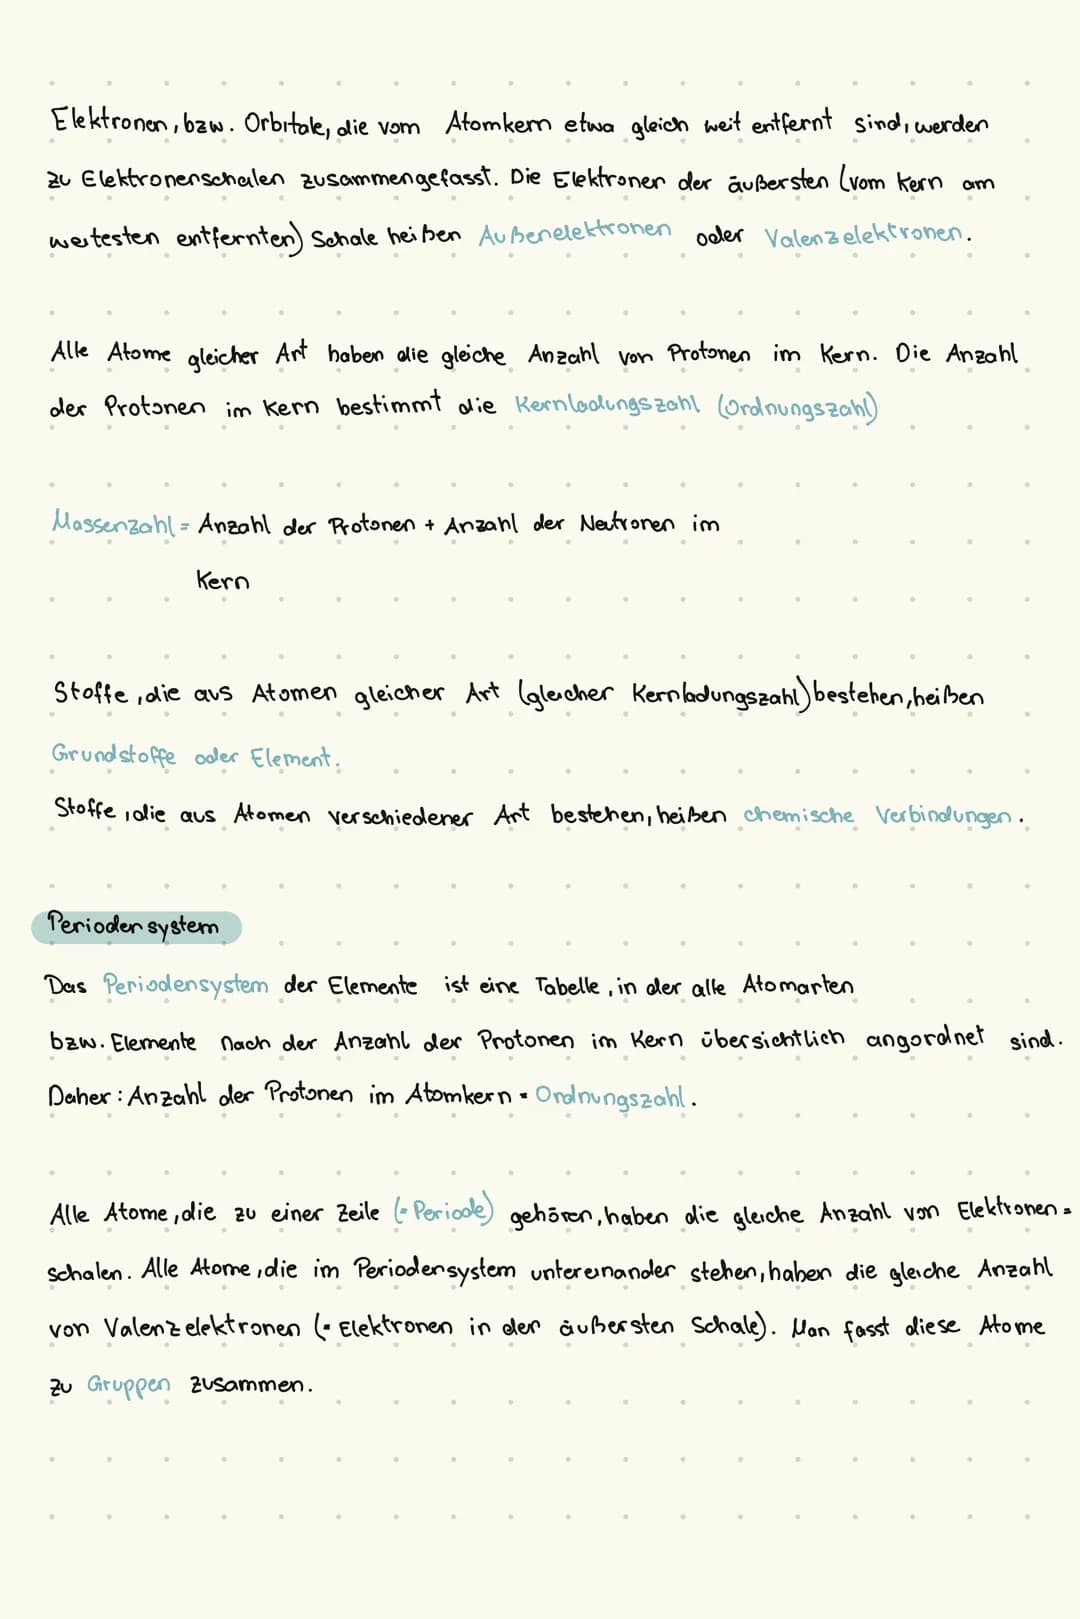 Elektronen, bzw. Orbitale, die vom Atomkern etwa gleich weit entfernt sind, werden
zu Elektronenschalen zusammengefasst. Die Elektronen der äußersten (vom Kern am
weitesten entfernten) Schale heißen Außenelektronen oder Valenzelektronen.
Alle Atome gleicher Art haben die gleiche Anzahl von Protonen im Kern. Die Anzahl
der Protonen im Kern bestimmt die Kernladungszahl (Ordnungszahl)
Massenzahl = Anzahl der Protonen + Anzahl der Neutronen im
Kern
Stoffe, die aus Atomen gleicher Art (gleicher Kernladungszahl) bestehen, heißen
Grundstoffe oder Element.
Stoffe, die aus Atomen verschiedener Art bestehen, heißen chemische Verbindungen.
Periodensystem
Das Periodensystem der Elemente ist eine Tabelle, in der alle Atomarten
bzw. Elemente nach der Anzahl der Protonen im Kern übersichtlich angordnet sind.
Daher: Anzahl der Protonen im Atomkern = Ordnungszahl.
Alle Atome, die zu einer Zeile (= Periode) gehören, haben die gleiche Anzahl von Elektronen=
schalen. Alle Atome, die im Periodensystem untereinander stehen, haben die gleiche Anzahl
von Valenzelektronen (= Elektronen in der äußersten Schale). Man fasst diese Atome
zu Gruppen zusammen.